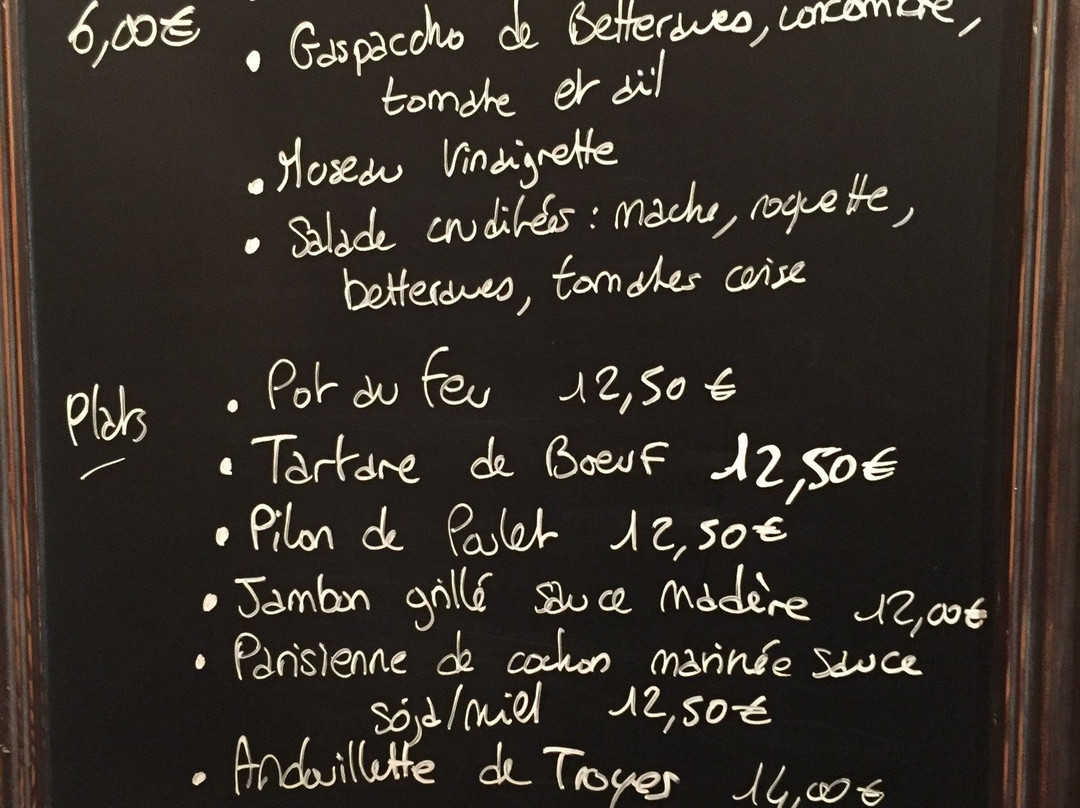 6,00€ • Gaspaccho de Betteraves, concombre,
tomate et ail
• Museau Vinaigrette
• Salade crudités : mache, roquette,
betteraves, tomates cerise
Plats • Pot au feu 12,50 €
• Tartare de Boeuf 12,50€
• Pilon de Poulet 12,50€
• Jambon grillé sauce Madère 12,00€
• Parisienne de cochon marinée sauce
soja/miel 12,50€
• Andouillette de Troyes 14,00€